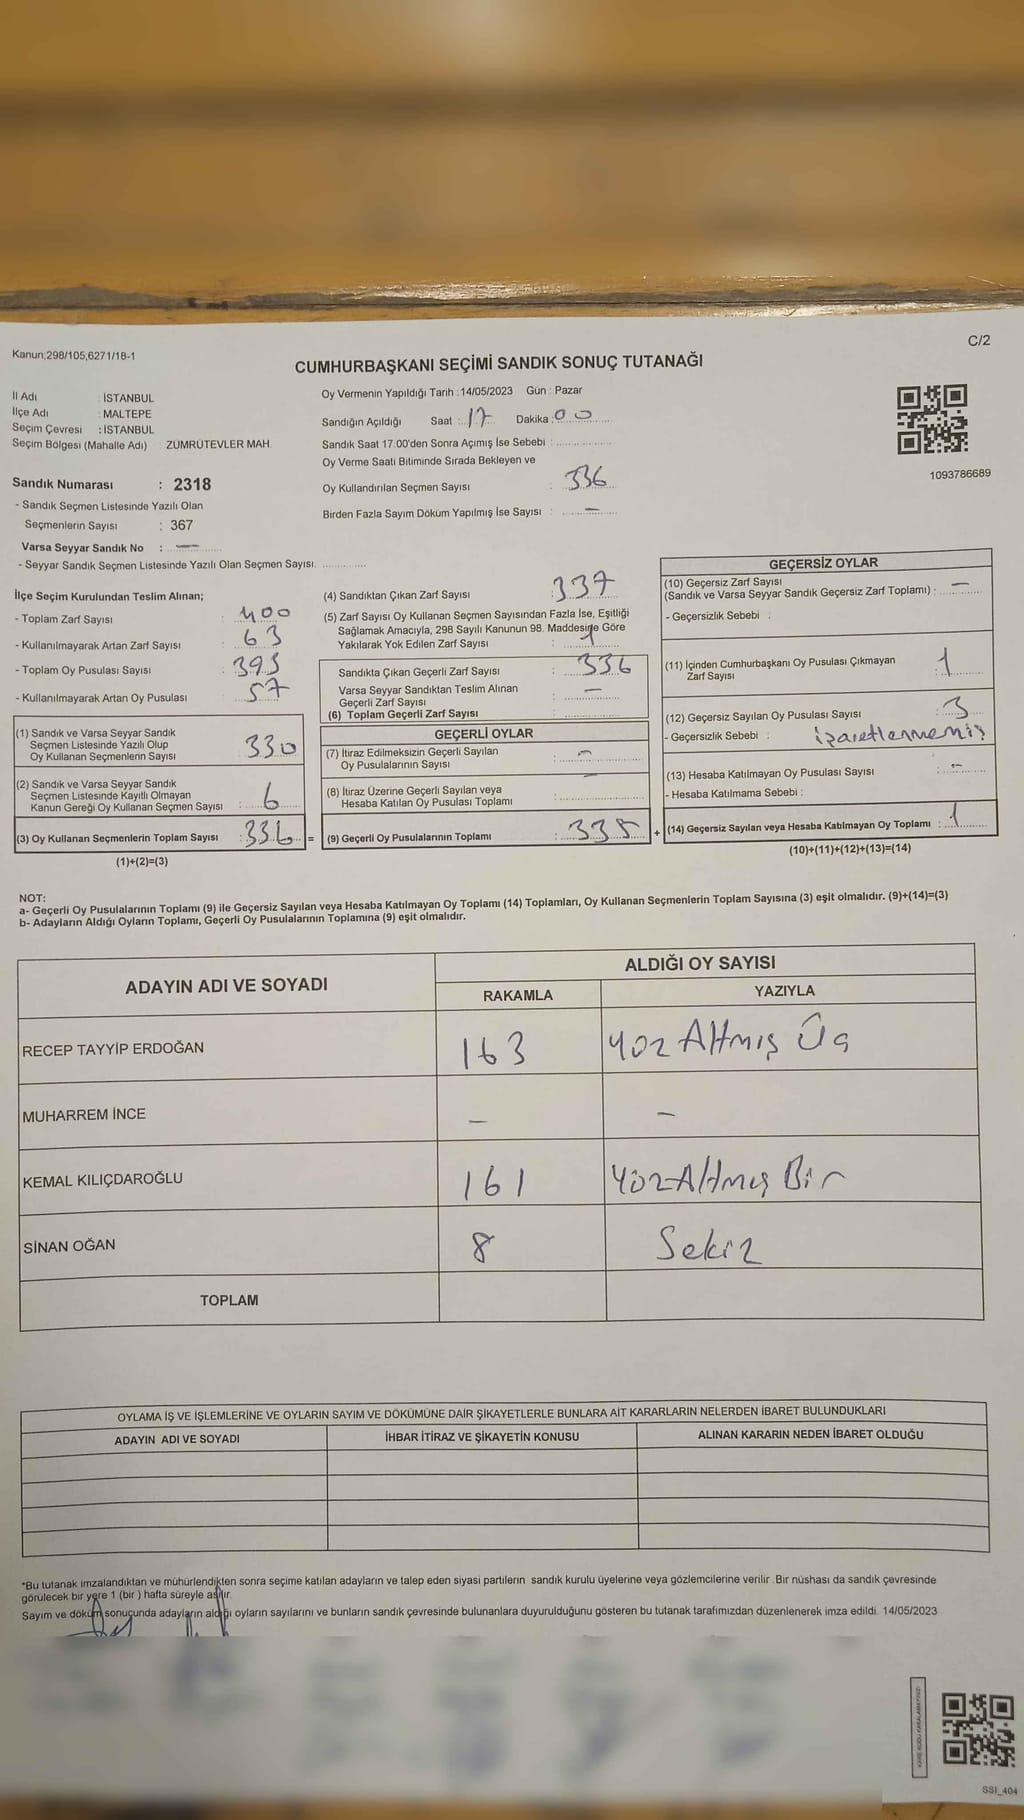 Kanun;298/105,6271/18-1
C/2
CUMHURBAŞKANI SEÇİMİ SANDIK SONUÇ TUTANAĞI
İl Adı : İSTANBUL
İlçe Adı : MALTEPE
Seçim Çevresi : İSTANBUL
Seçim Bölgesi (Mahalle Adı) : ZÜMRÜTEVLER MAH.
Sandık Numarası : 2318
- Sandık Seçmen Listesinde Yazılı Olan
Seçmenlerin Sayısı : 367
Varsa Seyyar Sandık No : —
- Seyyar Sandık Seçmen Listesinde Yazılı Olan Seçmen Sayısı. ..............
Oy Vermenin Yapıldığı Tarih : 14/05/2023 Gün : Pazar
Sandığın Açıldığı Saat : 17 Dakika : 00
Sandık Saat 17.00'den Sonra Açımış İse Sebebi : ..............
Oy Verme Saati Bitiminde Sırada Bekleyen ve
Oy Kullandırılan Seçmen Sayısı : 336
Birden Fazla Sayım Döküm Yapılmış İse Sayısı : —
1093786689
İlçe Seçim Kurulundan Teslim Alınan;
- Toplam Zarf Sayısı : 400
- Kullanılmayarak Artan Zarf Sayısı : 63
- Toplam Oy Pusulası Sayısı : 393
- Kullanılmayarak Artan Oy Pusulası : 57
(1) Sandık ve Varsa Seyyar Sandık
Seçmen Listesinde Yazılı Olup
Oy Kullanan Seçmenlerin Sayısı : 330
(2) Sandık ve Varsa Seyyar Sandık
Seçmen Listesinde Kayıtlı Olmayan
Kanun Gereği Oy Kullanan Seçmen Sayısı : 6
(3) Oy Kullanan Seçmenlerin Toplam Sayısı : 336 =
(1)+(2)=(3)
(4) Sandıktan Çıkan Zarf Sayısı : 337
(5) Zarf Sayısı Oy Kullanan Seçmen Sayısından Fazla İse, Eşitliği
Sağlamak Amacıyla, 298 Sayılı Kanunun 98. Maddesine Göre
Yakılarak Yok Edilen Zarf Sayısı : 1
Sandıkta Çıkan Geçerli Zarf Sayısı : 336
Varsa Seyyar Sandıktan Teslim Alınan
Geçerli Zarf Sayısı : —
(6) Toplam Geçerli Zarf Sayısı : ..............
GEÇERLİ OYLAR
(7) İtiraz Edilmeksizin Geçerli Sayılan
Oy Pusulalarının Sayısı : —
(8) İtiraz Üzerine Geçerli Sayılan veya
Hesaba Katılan Oy Pusulası Toplamı : —
(9) Geçerli Oy Pusulalarının Toplamı : 335 +
GEÇERSİZ OYLAR
(10) Geçersiz Zarf Sayısı
(Sandık ve Varsa Seyyar Sandık Geçersiz Zarf Toplamı) : —
- Geçersizlik Sebebi :
(11) İçinden Cumhurbaşkanı Oy Pusulası Çıkmayan
Zarf Sayısı : 1
(12) Geçersiz Sayılan Oy Pusulası Sayısı : 3
- Geçersizlik Sebebi : işaretlenmemiş
(13) Hesaba Katılmayan Oy Pusulası Sayısı : —
- Hesaba Katılmama Sebebi :
(14) Geçersiz Sayılan veya Hesaba Katılmayan Oy Toplamı : 1
(10)+(11)+(12)+(13)=(14)
NOT:
a- Geçerli Oy Pusulalarının Toplamı (9) ile Geçersiz Sayılan veya Hesaba Katılmayan Oy Toplamı (14) Toplamları, Oy Kullanan Seçmenlerin Toplam Sayısına (3) eşit olmalıdır. (9)+(14)=(3)
b- Adayların Aldığı Oyların Toplamı, Geçerli Oy Pusulalarının Toplamına (9) eşit olmalıdır.
ADAYIN ADI VE SOYADI ALDIĞI OY SAYISI
RAKAMLA YAZIYLA
RECEP TAYYİP ERDOĞAN 163 Yüz Altmış Üç
MUHARREM İNCE — —
KEMAL KILIÇDAROĞLU 161 YüzAltmış Bir
SİNAN OĞAN 8 Sekiz
TOPLAM
OYLAMA İŞ VE İŞLEMLERİNE VE OYLARIN SAYIM VE DÖKÜMÜNE DAİR ŞİKAYETLERLE BUNLARA AİT KARARLARIN NELERDEN İBARET BULUNDUKLARI
ADAYIN ADI VE SOYADI İHBAR İTİRAZ VE ŞİKAYETİN KONUSU ALINAN KARARIN NEDEN İBARET OLDUĞU
*Bu tutanak imzalandıktan ve mühürlendikten sonra seçime katılan adayların ve talep eden siyasi partilerin sandık kurulu üyelerine veya gözlemcilerine verilir .Bir nüshası da sandık çevresinde
görülecek bir yere 1 (bir ) hafta süreyle asılır.
Sayım ve döküm sonuçunda adayların aldığı oyların sayılarını ve bunların sandık çevresinde bulunanlara duyurulduğunu gösteren bu tutanak tarafımızdan düzenlenerek imza edildi. 14/05/2023
SSI_404